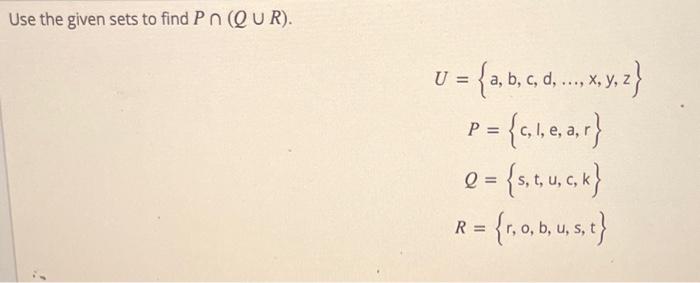 Use the given sets to find P ∩ (Q ∪ R).
U = {a, b, c, d, ..., x, y, z}
P = {c, l, e, a, r}
Q = {s, t, u, c, k}
R = {r, o, b, u, s, t}